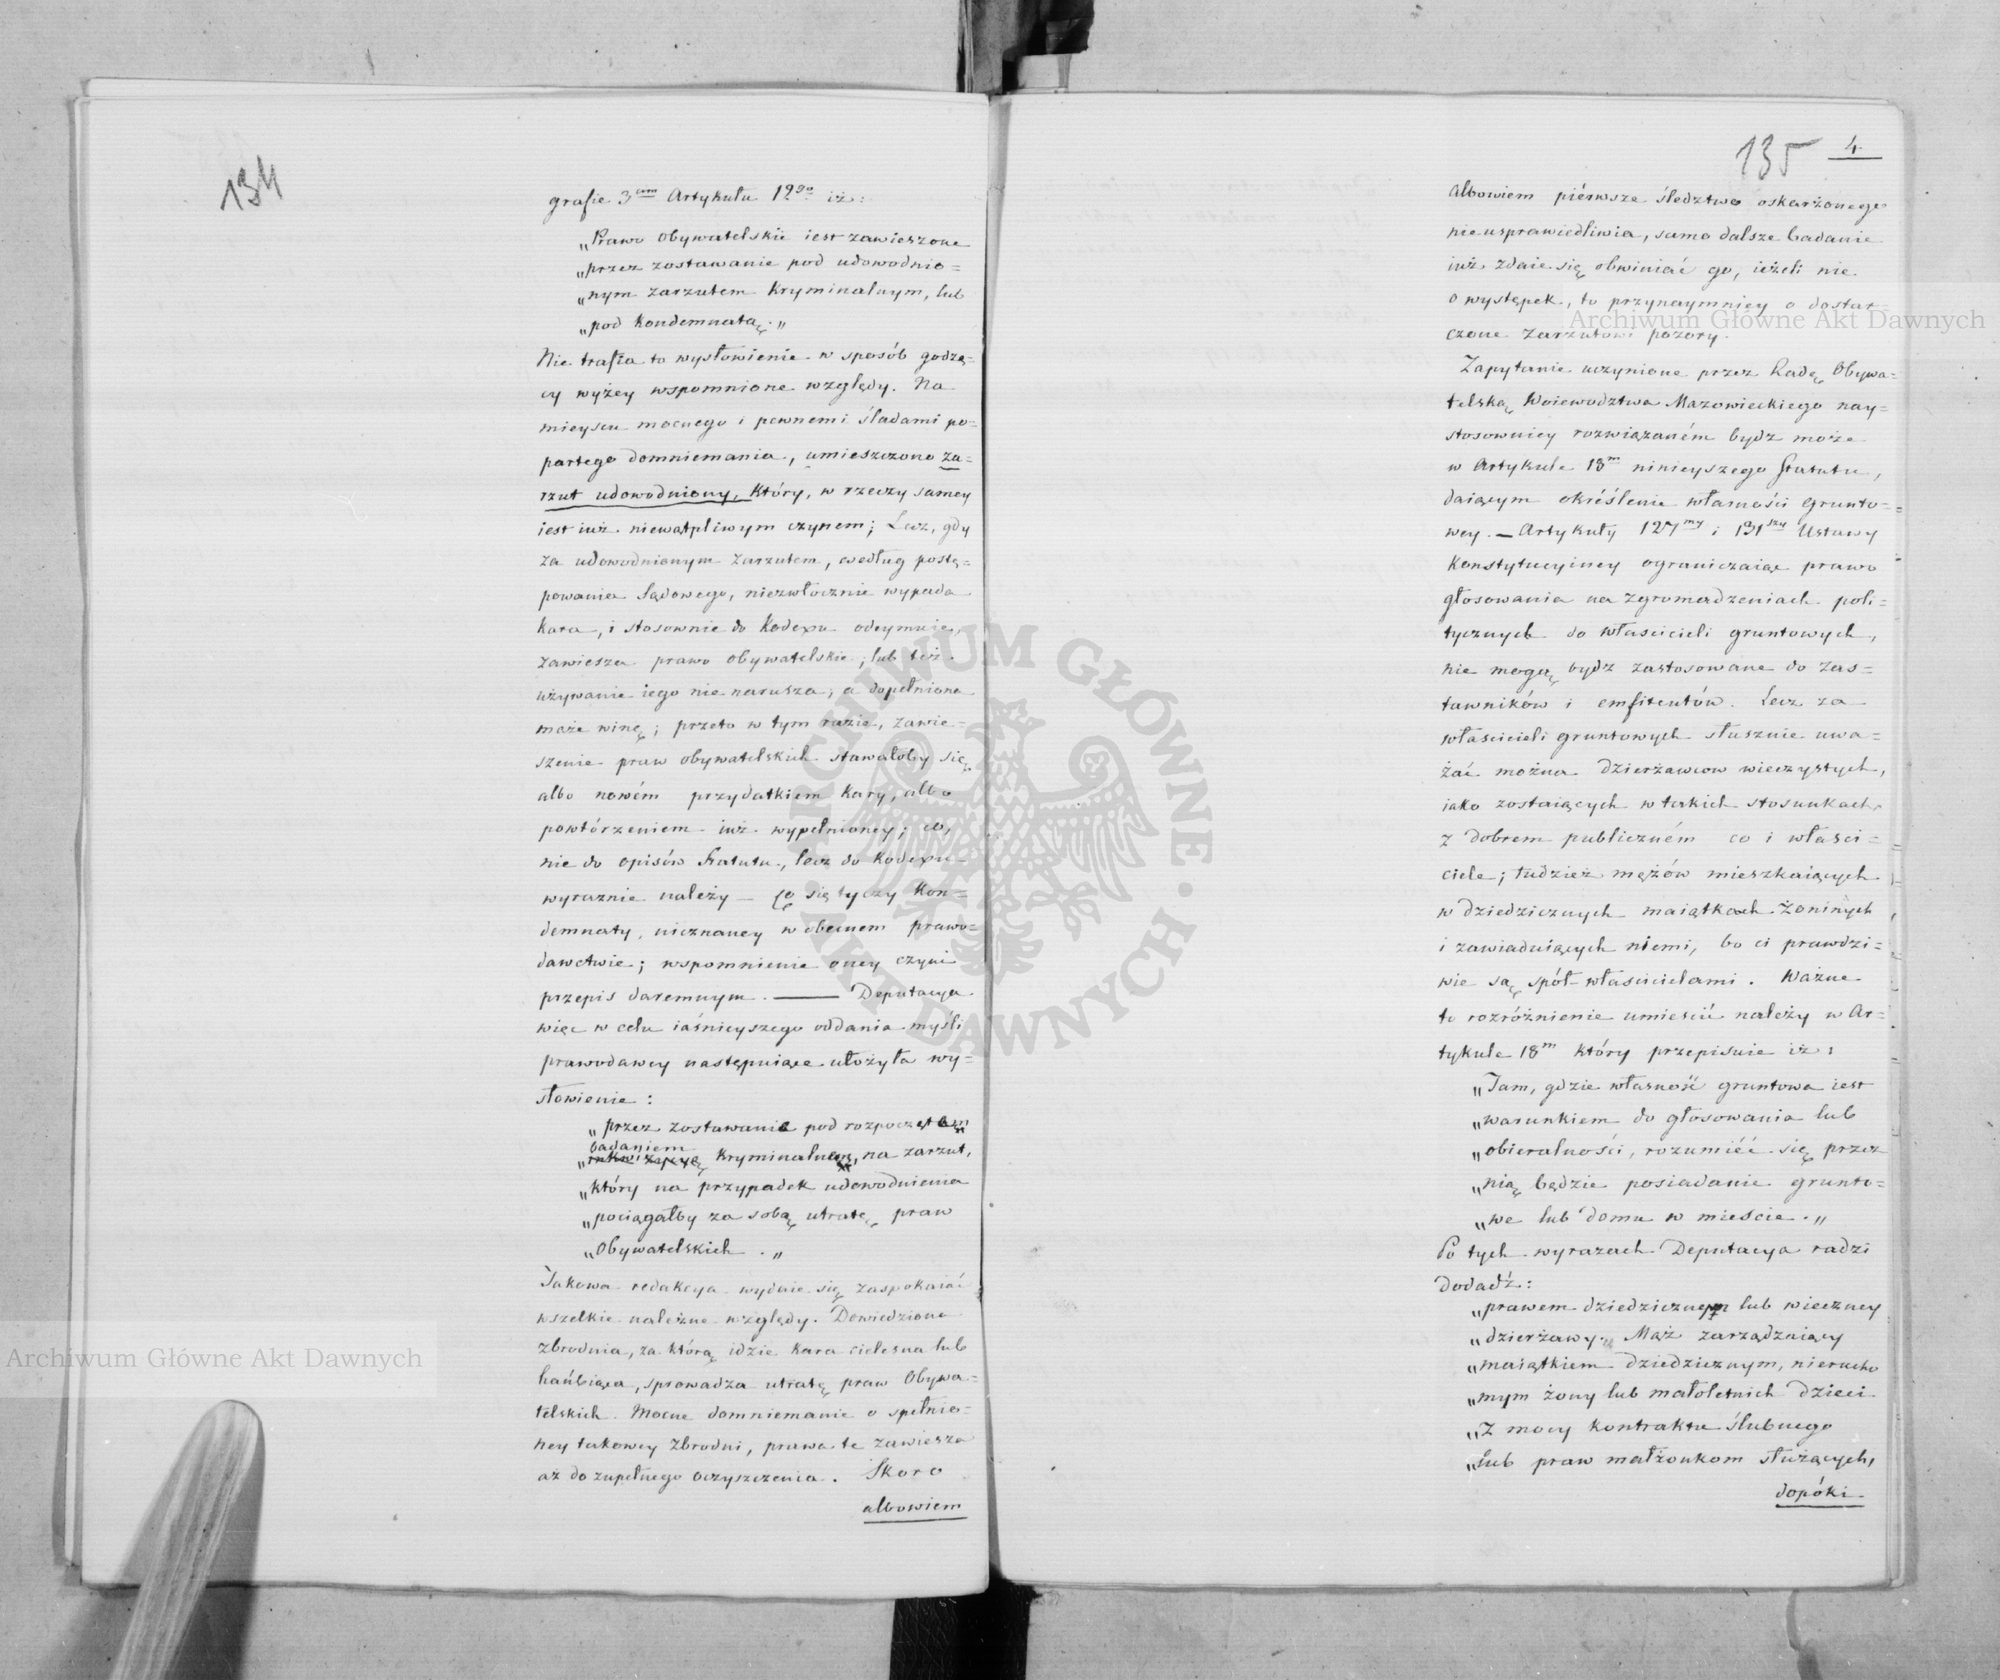 134
grafie 3cim Artykułu 12go iż:
„Prawo Obywatelskie iest zawieszone
„przez zostawanie pod udowodnio=
„nym zarzutem Kryminalnym, lub
„pod Kondemnatą.„
Nie trafia to wysłowienie w sposób godzą=
cy wyżey wspomnione względy. Na
mieyscu mocnego i pewnemi śladami po=
partego domniemania, umieszczono za=
rzut udowodniony, Który, w rzeczy samey
iest iuż niewątpliwym czynem; Lecz, gdy
za udowodnionym zarzutem, według postę=
powania Sądowego, niezwłocznie wypada
Kara, i stosownie do Kodexu odeymuie,
zawiesza prawo Obywatelskie; lub też
używanie iego nie narusza; a dopełniona
maże winę; przeto w tym razie, zawie=
szenie praw obywatelskich stawałoby się
albo nowém przydatkiem Kary, albo
powtórzeniem iuż wypełnioney; co,
nie do opisów Statutu, lecz do Kodexu
wyraznie należy — Co się tyczy Kon=
demnaty, nieznaney w obecnem prawo=
dawctwie; wspomnienie oney czyni
przepis daremnym. — Deputacya
więc w celu iaśnieyszego oddania myśli
prawodawcy następuiące ułożyła wy=
słowienie:
„przez zostawanie pod rozpoczętem
badaniem
„inkwizycyą Kryminalnem, na zarzut,
„Który na przypadek udowodnienia
„pociągałby za sobą utratę praw
„Obywatelskich.„
Takowa redakcya wydaie się zaspokaiać
wszelkie należne względy. Dowiedziona
zbrodnia, za którą idzie Kara cielesna lub
hańbiąca, sprowadza utratę praw Obywa=
telskich. Mocne domniemanie o spełnio=
ney takowey zbrodni, prawa te zawiesza
aż do zupełnego oczyszczenia. Skoro
albowiem
135 4.
Albowiem piérwsze śledztwo oskarżonego
nie usprawiedliwia, samo dalsze badanie
iuż zdaie się obwiniać go, ieżeli nie
o występek, to przynaymniey o dostar=
czone zarzutowi pozory.
Zapytanie uczynione przez Radę Obywa=
telską Woiewodztwa Mazowieckiego nay=
stosowniey rozwiązaném bydz może
w Artykule 18m ninieyszego Statutu,
daiącym okréślenie własności grunto=
wey. — Artykuły 127my i 131szy Ustawy
Konstytucyiney ograniczaiąc prawo
głosowania na zgromadzeniach poli=
tycznych do właścicieli gruntowych,
nie mogą bydz zastosowane do zas=
tawników i emfiteutów. Lecz za
właścicieli gruntowych słusznie uwa=
żać można dzierżawców wieczystych,
iako zostaiących w takich stosunkach
z dobrem publiczném co i właści=
ciele; tudzież mężów mieszkaiących
w dziedzicznych maiątkach żoninych
i zawiaduiących niemi, bo ci prawdzi=
wie są spół-właścicielami. Ważne
to rozróżnienie umieścić należy w Ar=
tykule 18m który przepisuie iż:
„Tam, gdzie własność gruntowa iest
„warunkiem do głosowania lub
„obieralności, rozumiéć się przez
„nią będzie posiadanie grunto=
„we lub domu w mieście.„
Po tych wyrazach Deputacya radzi
dodadź:
„prawem dziedzicznem lub wieczney
„dzierżawy. Mąż zarządzaiący
„maiątkiem dziedzicznym, nierucho
„mym żony lub małoletnich Dzieci
„Z mocy Kontraktu ślubnego
„lub praw małżonkom służących,
dopóki
Archiwum Główne Akt Dawnych
Archiwum Główne Akt Dawnych
ARCHIWUM GŁÓWNE · AKT DAWNYCH ·